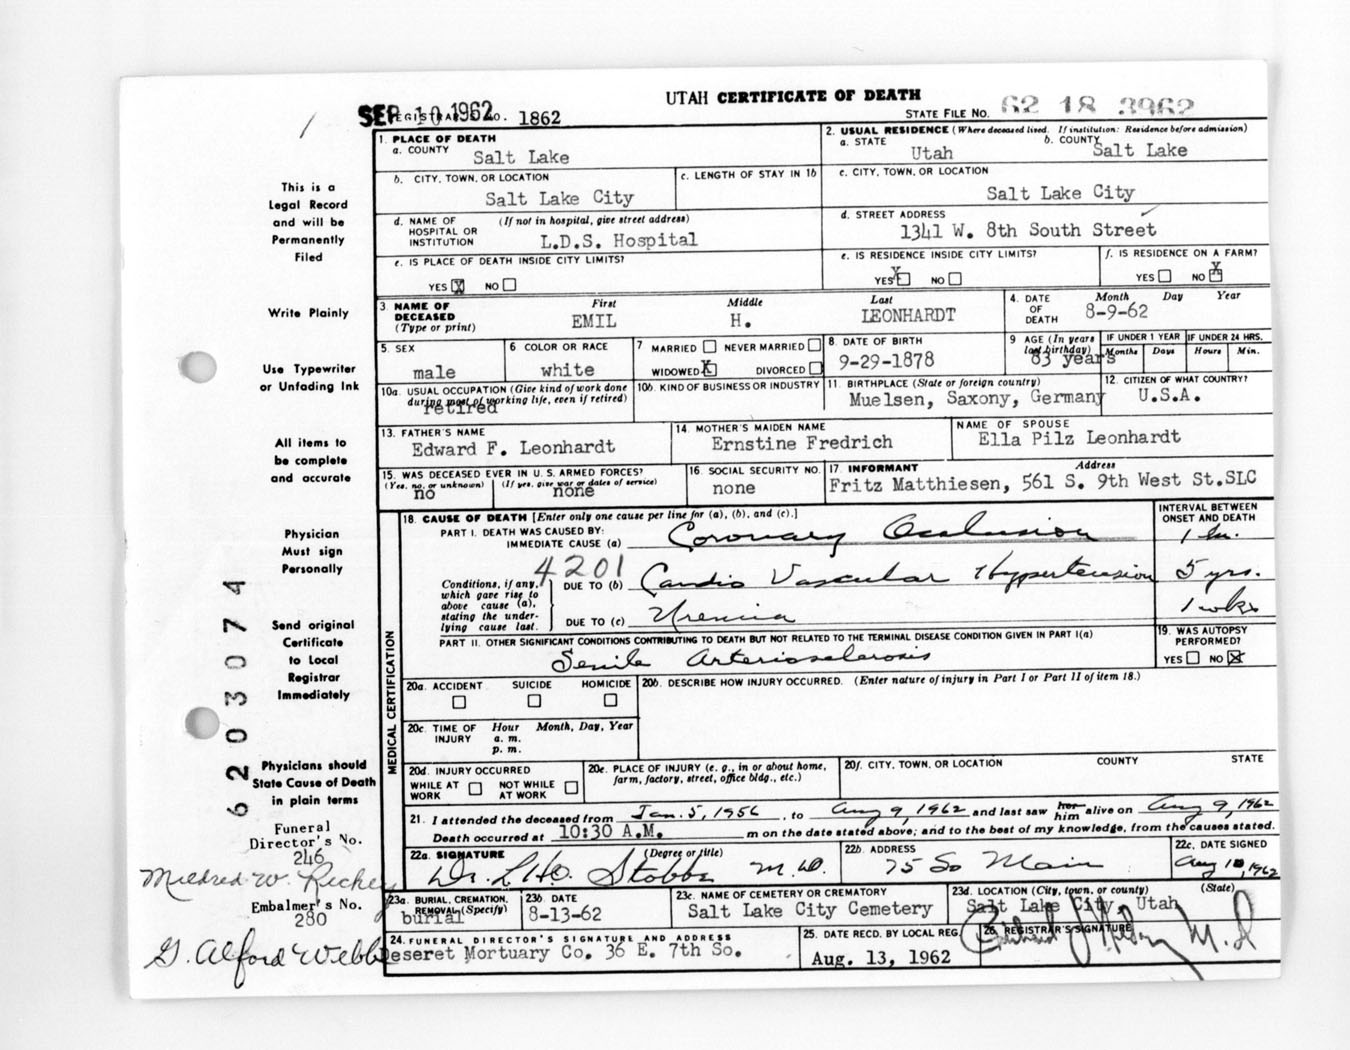 UTAH CERTIFICATE OF DEATH
SEP 10 1962
REGISTRAR'S NO. 1862
STATE FILE NO. 62 18 3962
1. PLACE OF DEATH
a. COUNTY
Salt Lake
2. USUAL RESIDENCE (Where deceased lived. If institution: Residence before admission)
a. STATE Utah b. COUNTY Salt Lake
b. CITY, TOWN, OR LOCATION
Salt Lake City
c. LENGTH OF STAY IN 1b
c. CITY, TOWN, OR LOCATION
Salt Lake City
d. NAME OF HOSPITAL OR INSTITUTION (If not in hospital, give street address)
L.D.S. Hospital
d. STREET ADDRESS
1341 W. 8th South Street
e. IS PLACE OF DEATH INSIDE CITY LIMITS?
YES X NO
e. IS RESIDENCE INSIDE CITY LIMITS?
YES X NO
f. IS RESIDENCE ON A FARM?
YES NO X
3. NAME OF DECEASED (Type or print)
First Middle Last
EMIL H. LEONHARDT
4. DATE OF DEATH
Month Day Year
8-9-62
5. SEX
male
6 COLOR OR RACE
white
7 MARRIED NEVER MARRIED
WIDOWED X DIVORCED
8. DATE OF BIRTH
9-29-1878
9 AGE (In years last birthday)
83 years
IF UNDER 1 YEAR
Months Days
IF UNDER 24 HRS.
Hours Min.
10a. USUAL OCCUPATION (Give kind of work done during most of working life, even if retired)
retired
10b. KIND OF BUSINESS OR INDUSTRY
11. BIRTHPLACE (State or foreign country)
Muelsen, Saxony, Germany
12. CITIZEN OF WHAT COUNTRY?
U.S.A.
13. FATHER'S NAME
Edward F. Leonhardt
14. MOTHER'S MAIDEN NAME
Ernstine Fredrich
NAME OF SPOUSE
Ella Pilz Leonhardt
15. WAS DECEASED EVER IN U. S. ARMED FORCES?
(Yes, no, or unknown) (If yes, give war or dates of service)
no none
16. SOCIAL SECURITY NO.
none
17. INFORMANT Address
Fritz Matthiesen, 561 S. 9th West St.SLC
MEDICAL CERTIFICATION
18. CAUSE OF DEATH [Enter only one cause per line for (a), (b), and (c).]
INTERVAL BETWEEN ONSET AND DEATH
PART I. DEATH WAS CAUSED BY:
IMMEDIATE CAUSE (a) Coronary Occlusion
4201
Conditions, if any, which gave rise to above cause (a), stating the underlying cause last.
DUE TO (b) Cardio Vascular Hypertension 5 yrs.
DUE TO (c) Uremia 1 wks
PART II. OTHER SIGNIFICANT CONDITIONS CONTRIBUTING TO DEATH BUT NOT RELATED TO THE TERMINAL DISEASE CONDITION GIVEN IN PART I(a)
Senile Arteriosclerosis
19. WAS AUTOPSY PERFORMED?
YES NO X
20a. ACCIDENT SUICIDE HOMICIDE
20b. DESCRIBE HOW INJURY OCCURRED. (Enter nature of injury in Part I or Part II of item 18.)
20c. TIME OF INJURY Hour Month, Day, Year
a. m.
p. m.
20d. INJURY OCCURRED
WHILE AT WORK NOT WHILE AT WORK
20e. PLACE OF INJURY (e. g., in or about home, farm, factory, street, office bldg., etc.)
20f. CITY, TOWN, OR LOCATION COUNTY STATE
21. I attended the deceased from Jan. 5, 1956, to Aug 9, 1962 and last saw her him alive on Aug 9, 1962
Death occurred at 10:30 A.M. m on the date stated above; and to the best of my knowledge, from the causes stated.
22a. SIGNATURE (Degree or title)
Dr. L. H. O. Stobbe M.D.
22b. ADDRESS
75 So Main
22c. DATE SIGNED
Aug 10, 1962
23a. BURIAL, CREMATION, REMOVAL (Specify)
burial
23b. DATE
8-13-62
23c. NAME OF CEMETERY OR CREMATORY
Salt Lake City Cemetery
23d. LOCATION (City, town, or county) (State)
Salt Lake City, Utah
24. FUNERAL DIRECTOR'S SIGNATURE AND ADDRESS
Deseret Mortuary Co. 36 E. 7th So.
25. DATE RECD. BY LOCAL REG.
Aug. 13, 1962
26. REGISTRAR'S SIGNATURE
M.D
This is a
Legal Record
and will be
Permanently
Filed
Write Plainly
Use Typewriter
or Unfading Ink
All items to
be complete
and accurate
Physician
Must sign
Personally
Send original
Certificate
to Local
Registrar
Immediately
Physicians should
State Cause of Death
in plain terms
6203074
Funeral
Director's No.
246
Mildred W. Richey
Embalmer's No.
280
G. Alford Webb